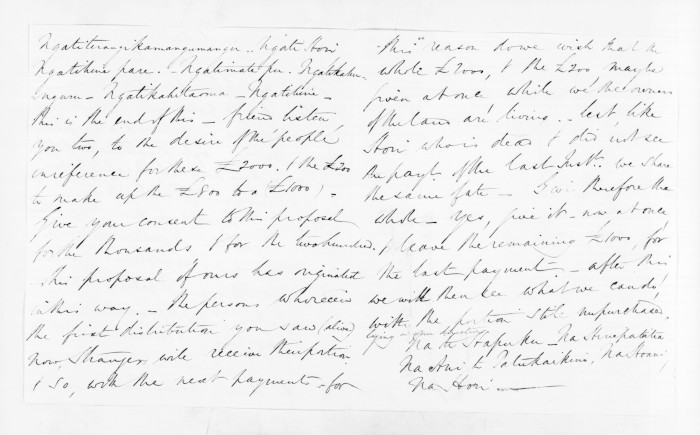 Ngatiterangikamangumangu.. Ngati Hori
Ngatihine pare. - Ngatimate pu. Ngatikahu-
- Ngatikahitaoma - Ngatihine -
This is the end of this - friend listen
you two, to the desire of the people
in reference for these £2000. (& the £200
to make up the £800 to a £1000) -
Give your consent to this proposal
for the thousands & for the two hundred.
This proposal of ours has originated
in this way. - The persons who receive
the first distribution you saw (alive)
now, Strangers will receive their portion
& so, with the next payments - for
this reason do we wish that the
whole £2000, & the £200 may be
given at once while we the owners
of the land are living. - lest like
Hori who is dead & did not see
the payt of the last Inst. we share
the same fate - Give therefore the
whole - yes, give it - now at once
& leave the remaining £1000, for
the last payment - after this
we will then see what we can do
with the portion still unpurchased.
lying
Na te Hapuku - Na
Na Ani te Patukaikino, Na Hoani,
Na Hori